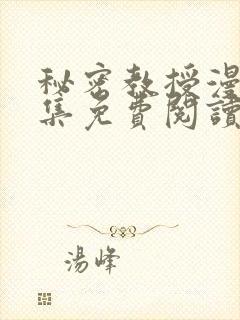 秘密教授漫
集免費閱讀
湯峰